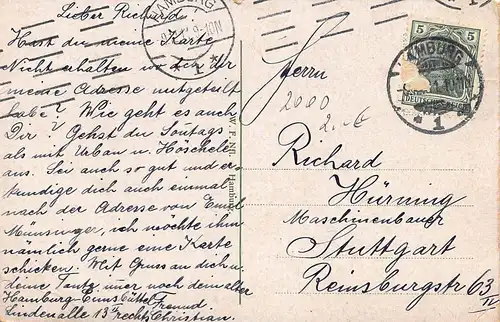 Lieber Richard.
Hast du meine Karte
Nicht erhalten wo ich dir
meine Adresse mitgeteilt
habe? Wie geht es auch
Dir? Gehst du Sontags
als mit Urban u. Höschele
aus. Sei auch so gut und er-
kundige dich auch einmal
nach der Adresse von Emil
Münsinger, ich möchte ihm
nämlich gerne eine Karte
schicken. Mit Gruss an dich u.
deine Tante immer noch dein alter
Freund
Hamburg-Eimsbüttel
Lindenalle 13 rechts Christian.
W. F. Nfl. Hamburg
HAMBURG
1
5
5
HAMBURG
DEUTSCHES REICH
1
Herrn
2000
Richard
Hürning
Maschinenbauer
Stuttgart
Reinsburgstr 63
II